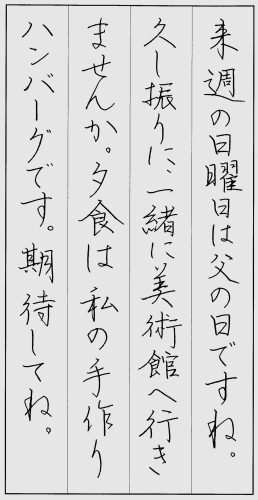 来週の日曜日は父の日ですね。
久し振りに、一緒に美術館へ行き
ませんか。夕食は私の手作り
ハンバーグです。期待してね。